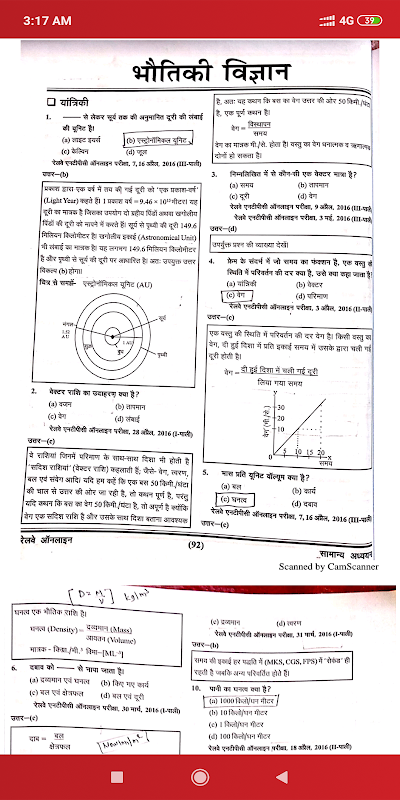 3:17 AM
4G 39
भौतिकी विज्ञान
❑ यांत्रिकी
1. —— से लेकर सूर्य तक की अनुमानित दूरी की लंबाई
की यूनिट है।
(a) लाइट इयर्स (b) एस्ट्रोनॉमिकल यूनिट
(c) केल्विन (d) जूल
रेलवे एनटीपीसी ऑनलाइन परीक्षा, 7,16 अप्रैल, 2016 (III-पाली)
उत्तर—(b)
प्रकाश द्वारा एक वर्ष में तय की गई दूरी को 'एक प्रकाश-वर्ष'
(Light Year) कहते हैं। 1 प्रकाश वर्ष = 9.46 × 10¹⁵मीटर। यह
दूरी का मात्रक है जिसका उपयोग दो ग्रहीय पिंडों अथवा खगोलीय
पिंडों की दूरी को मापने में करते हैं। सूर्य से पृथ्वी की दूरी 149.6
मिलियन किलोमीटर है। खगोलीय इकाई (Astronomical Unit)
भी लंबाई का मात्रक है। यह लगभग 149.6 मिलियन किलोमीटर
है और पृथ्वी से सूर्य की दूरी पर आधारित है। अतः उपयुक्त उत्तर
विकल्प (b) होगा।
चित्र से समझें- एस्ट्रोनॉमिकल यूनिट (AU)
सूर्य
मंगल
1.52
AU
1 AU
शुक्र
बुध
पृथ्वी
2. वेक्टर राशि का उदाहरण क्या है?
(a) वजन (b) तापमान
(c) वेग (d) लंबाई
रेलवे एनटीपीसी ऑनलाइन परीक्षा, 28 अप्रैल, 2016 (I-पाली)
उत्तर—(c)
वे राशियां जिनमें परिमाण के साथ-साथ दिशा भी होती है
'सदिश राशियां' (वेक्टर राशि) कहलाती हैं; जैसे- वेग, त्वरण,
बल एवं संवेग आदि। यदि हम कहें कि एक बस 50 किमी./घंटा
की चाल से उत्तर की ओर जा रही है, तो कथन पूर्ण है, परंतु
यदि कथन कि बस का वेग 50 किमी./घंटा है, तो अपूर्ण है क्योंकि
वेग एक सदिश राशि है और उसके साथ दिशा बताना आवश्यक
है, अतः यह कथन कि बस का वेग उत्तर की ओर 50 किमी./घंटा
है, एक पूर्ण कथन है।
वेग = विस्थापन
समय
वेग का मात्रक मी./से. होता है। वस्तु का वेग धनात्मक व ऋणात्मक
दोनों हो सकता है।
3. निम्नलिखित में से कौन-सी एक वेक्टर मात्रा है?
(a) समय (b) तापमान
(c) दूरी (d) वेग
रेलवे एनटीपीसी ऑनलाइन परीक्षा, 9 अप्रैल, 2016 (III-पाली)
रेलवे एनटीपीसी ऑनलाइन परीक्षा, 3 मई, 2016 (III-पाली)
उत्तर—(d)
उपर्युक्त प्रश्न की व्याख्या देखें।
4. फ्रेम के संदर्भ में जो समय का फंक्शन है, एक वस्तु की
स्थिति में परिवर्तन की दर क्या है, उसे क्या कहा जाता है
(a) यांत्रिकी (b) वेक्टर
(c) वेग (d) परिमाण
रेलवे एनटीपीसी ऑनलाइन परीक्षा, 3 अप्रैल, 2016 (II-पाली)
उत्तर—(c)
एक वस्तु की स्थिति में परिवर्तन की दर वेग है। किसी वस्तु का
वेग, दी हुई दिशा में प्रति इकाई समय में उसके द्वारा चली गई
दूरी होती है।
वेग = दी हुई दिशा में चली गई दूरी
लिया गया समय
Y
30
20
10
वेग (मी./से.)
5 10 15 20 X
समय
5. मास प्रति यूनिट वॉल्यूम क्या है?
(a) बल (b) कार्य
(c) घनत्व (d) दबाव
रेलवे एनटीपीसी ऑनलाइन परीक्षा, 7,16 अप्रैल, 2016 (III-पाली)
उत्तर—(c)
रेलवे ऑनलाइन
(92)
सामान्य अध्ययन
Scanned by CamScanner
[D = M/V] kg/m³
घनत्व एक भौतिक राशि है।
घनत्व (Density) = द्रव्यमान (Mass)
आयतन (Volume)
मात्रक - किग्रा./मी.³ विमा—[ML⁻³]
6. दबाव को —— से नापा जाता है।
(a) द्रव्यमान एवं घनत्व (b) किए गए कार्य
(c) बल एवं क्षेत्रफल (d) बल एवं दूरी
रेलवे एनटीपीसी ऑनलाइन परीक्षा, 30 मार्च, 2016 (I-पाली)
उत्तर—(c)
दाब = बल
क्षेत्रफल
[Newton/m²]
(c) द्रव्यमान (d) त्वरण
रेलवे एनटीपीसी ऑनलाइन परीक्षा, 31 मार्च, 2016 (I-पाली)
उत्तर—(b)
समय की इकाई हर पद्धति में (MKS, CGS, FPS) में 'सेकेंड' ही
रहती है जबकि अन्य परिवर्तित होते हैं।
10. पानी का घनत्व क्या है?
(a) 1000 किलो/घन मीटर
(b) 10 किलो/घन मीटर
(c) 1 किलो/घन मीटर
(d) 100 किलो/घन मीटर
रेलवे एनटीपीसी ऑनलाइन परीक्षा, 18 अप्रैल, 2016 (II-पाली)